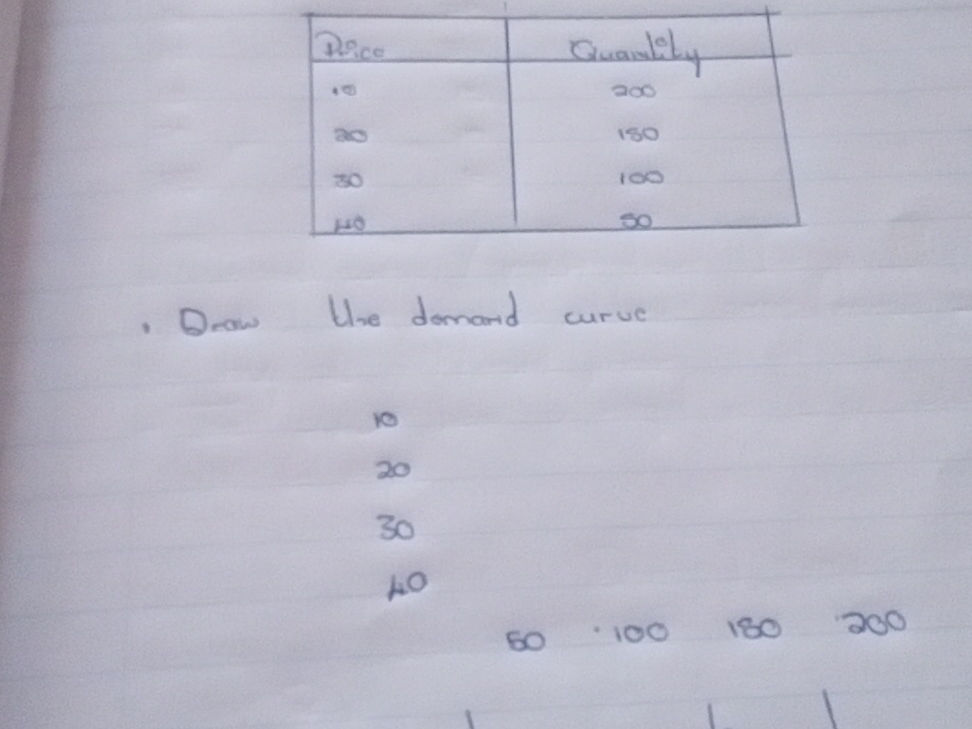 Price Quantity
10 200
20 150
30 100
40 50
. Draw the demand curve
10
20
30
40
50 100 150 200